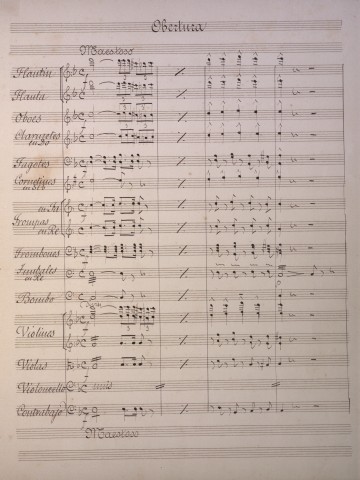 Obertura
Maestoso
Flautín
Flauta
Oboes
Clarinetes
en Do
Fagotes
Cornetines
en Si b
en Fa
Trompas
en Re
Trombones
Timbales
en Re
Bombo
Violines
Violas
Violoncello unis
Contrabajo
Maestoso